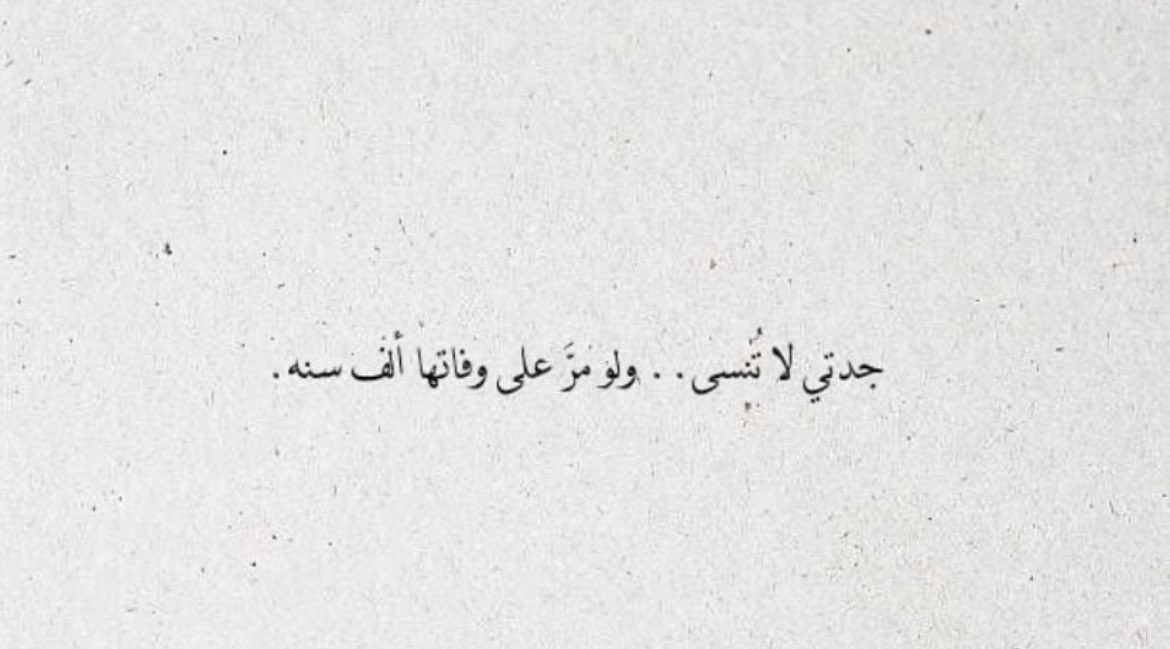 جدتي لا تُنسى . . ولو مرَّ على وفاتها ألف سنه .